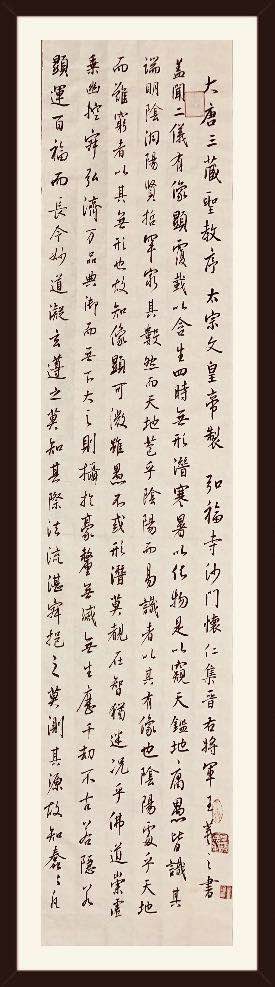 大唐三藏聖教序 太宗文皇帝製 弘福寺沙門懷仁集晉右將軍王羲之書
蓋聞二儀有像顯覆載以含生四時無形潛寒暑以化物是以窺天鑑地庸愚皆識其
端明陰洞陽賢哲罕窮其數然而天地苞乎陰陽而易識者以其有像也陰陽處乎天地
而難窮者以其無形也故知像顯可徵雖愚不惑形潛莫覩在智猶迷況乎佛道崇虛
乘幽控寂弘濟万品典御而無下大之則攝於豪釐無滅無生歷千劫不古若隱若
顯運百福而長今妙道凝玄遵之莫知其際法流湛寂挹之莫測其源故知蠢々凡